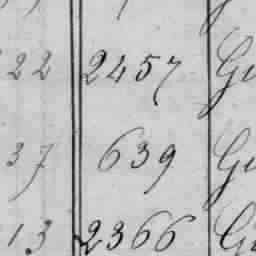 22 2457 Gu
37 639 Gu
13 2366 Gu